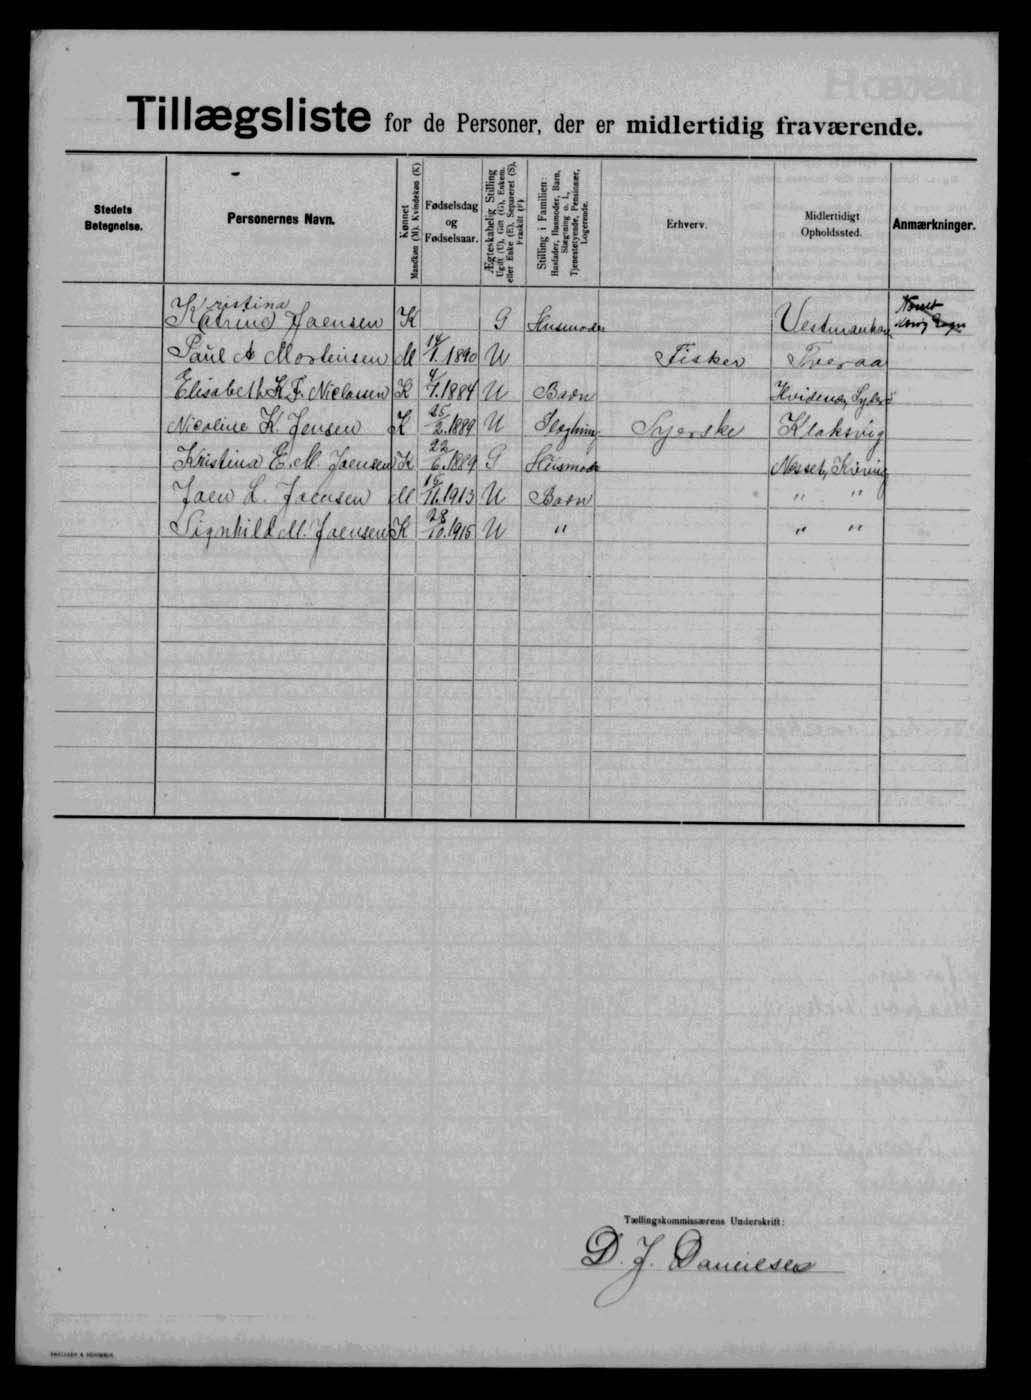 Tillægsliste for de Personer, der er midlertidig fraværende.
Stedets Betegnelse.
Personernes Navn.
Kønnet
Mandkøn (M). Kvindekøn (K)
Fødselsdag og Fødselsaar.
Ægteskabelig Stilling
Ugift (U), Gift (G), Enkem. eller Enke (E), Separeret (S), Fraskilt (F)
Stilling i Familien:
Husfader, Husmoder, Barn, Slægtning o. l., Tjenestetyende, Pensionær, Logerende.
Erhverv.
Midlertidigt Opholdssted.
Anmærkninger.
Kristina
Katrine Joensen K G Husmoder Vestmanhavn
Paul A Mortensen M 14/1. 1890 U Fisker Tveraa
Elisabeth K. F. Niclassen K 4/1. 1884 U Barn
Nicoline K. Jensen K 25/2. 1889 U Slægtning Syerske Klaksvig
Kristina E. M. Joensen K 22/6. 1889 G Husmoder
Joen L. Joensen M 16/11. 1913 U Barn " "
Signhild M. Joensen K 28/10. 1915 U " " "
Tællingskommissærens Underskrift:
D. J. Danielsen